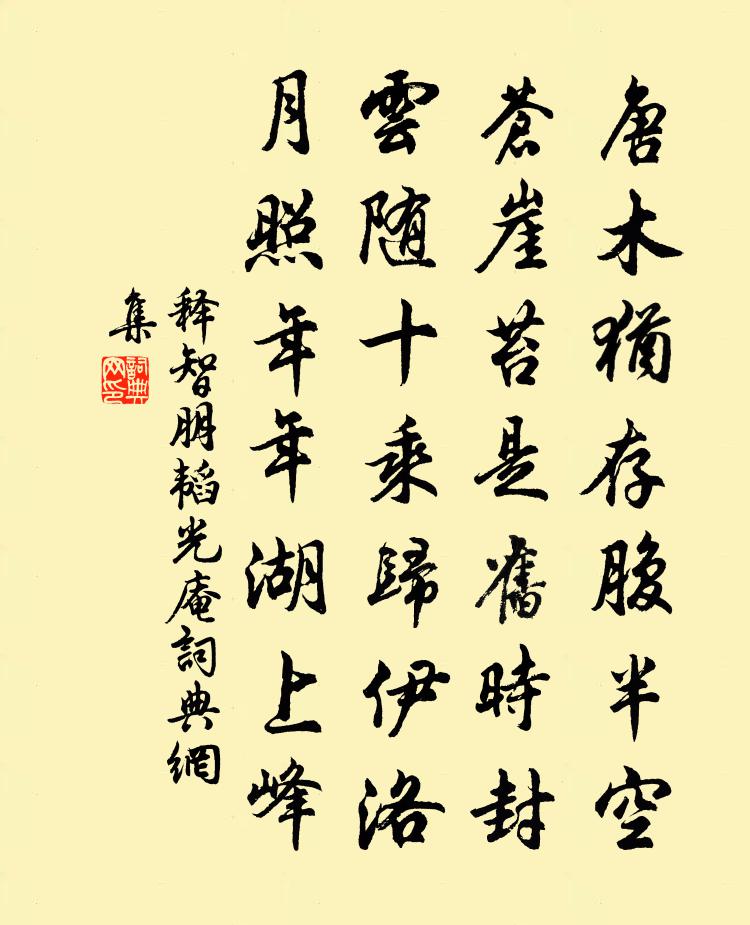 唐木猶存腹半空
蒼崖苔是舊時封
雲随十乘歸伊洛
月照年年湖上峰
释智朋韬光庵詞典網
集
詞典网印